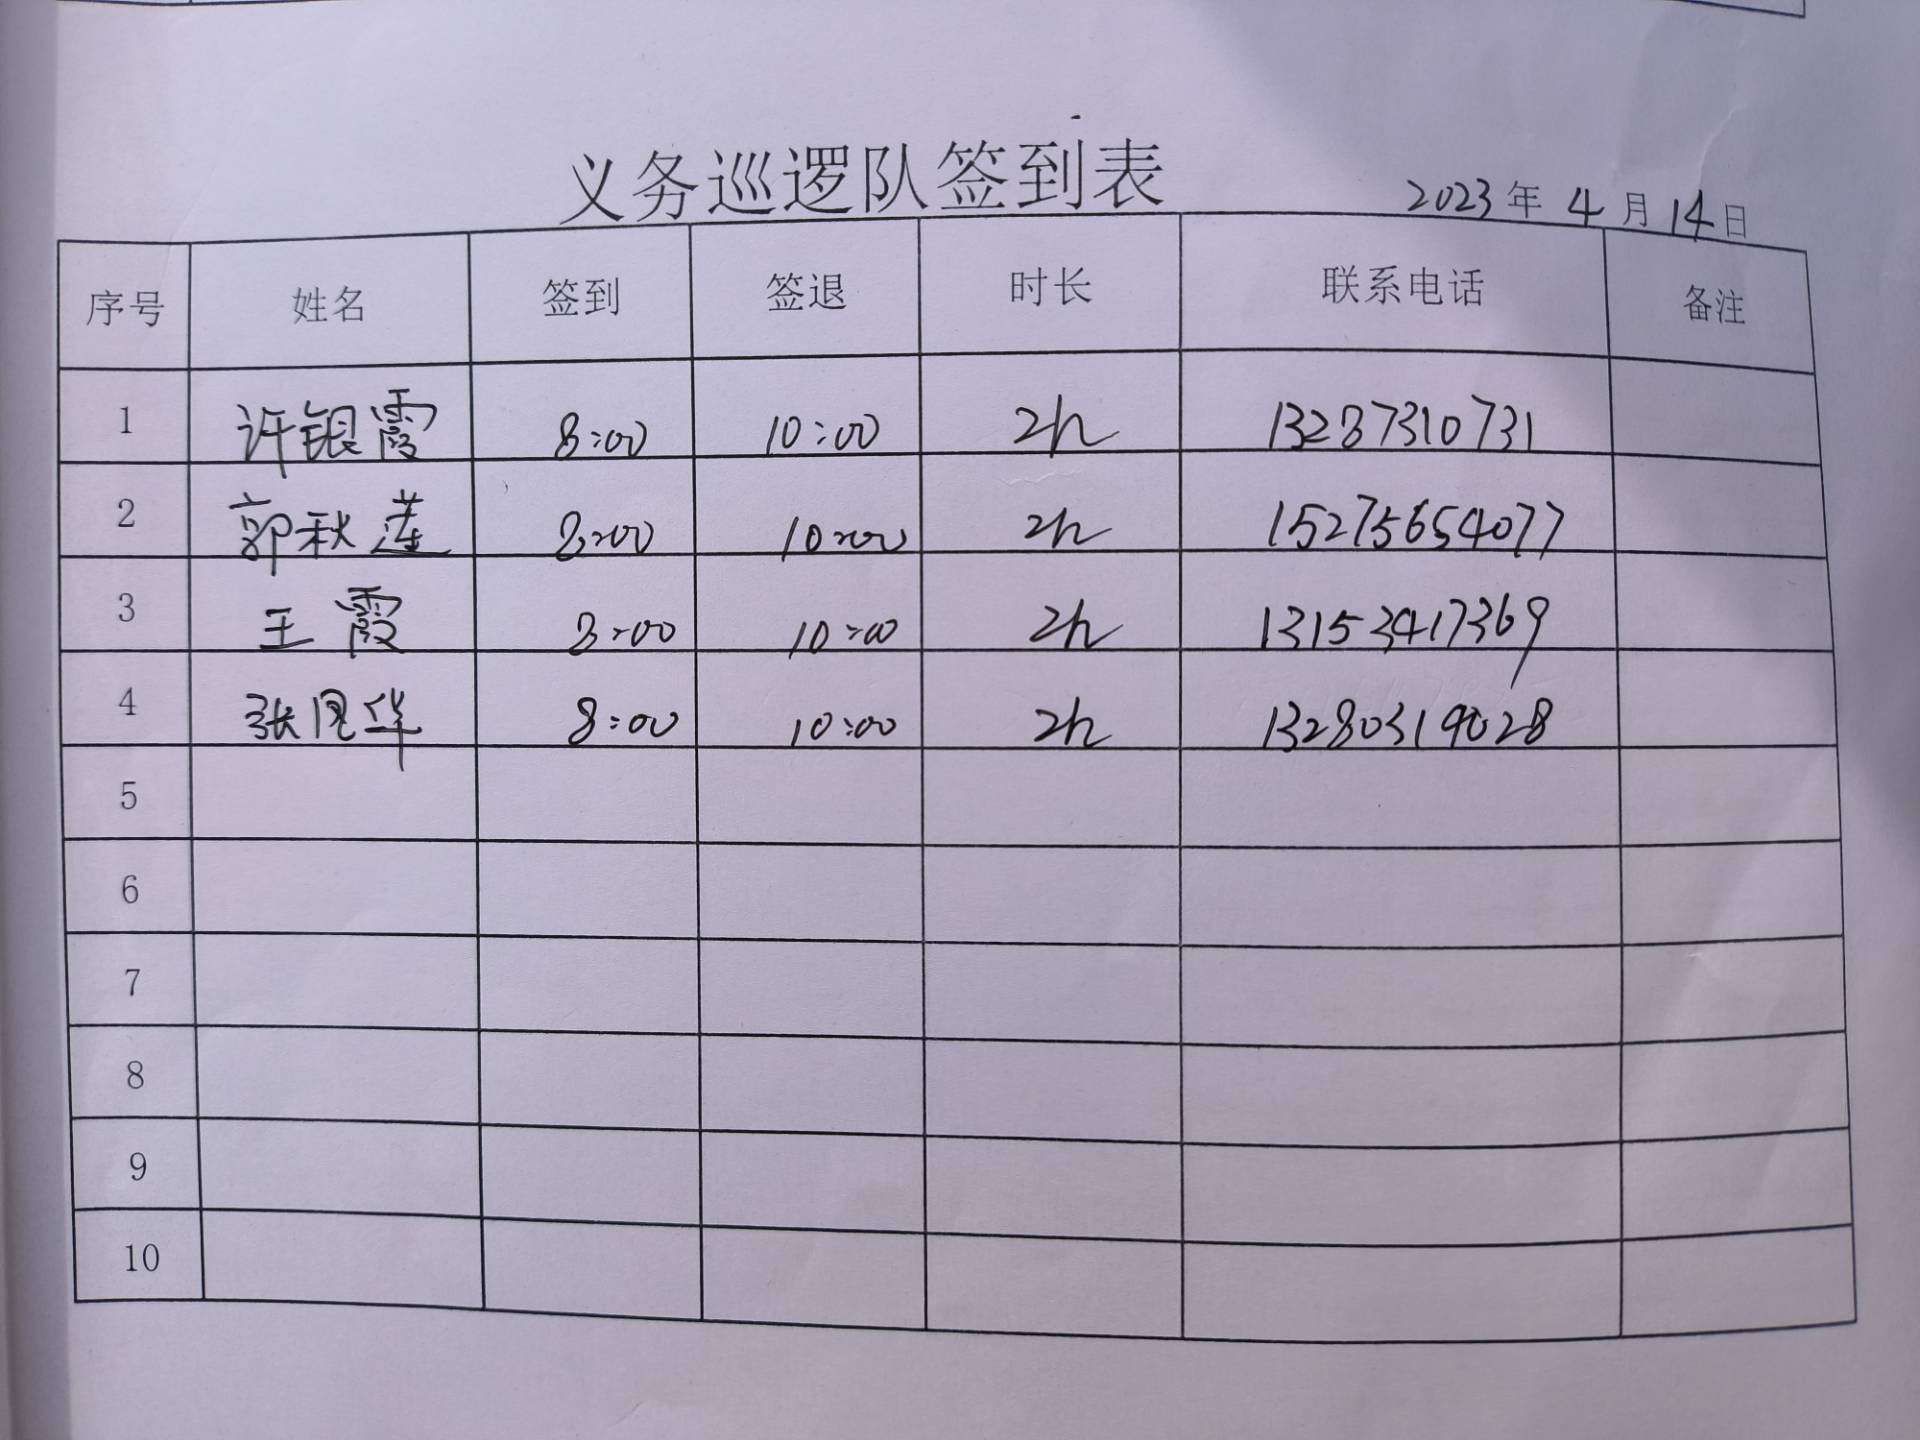 义务巡逻队签到表
2023年4月14日
序号 姓名 签到 签退 时长 联系电话 备注
1 许银霞 8:00 10:00 2h 13287310731
2 郭秋莲 8:00 10:00 2h 15275654077
3 王霞 8:00 10:00 2h 13153417369
4 张凤华 8:00 10:00 2h 13280319028
5
6
7
8
9
10